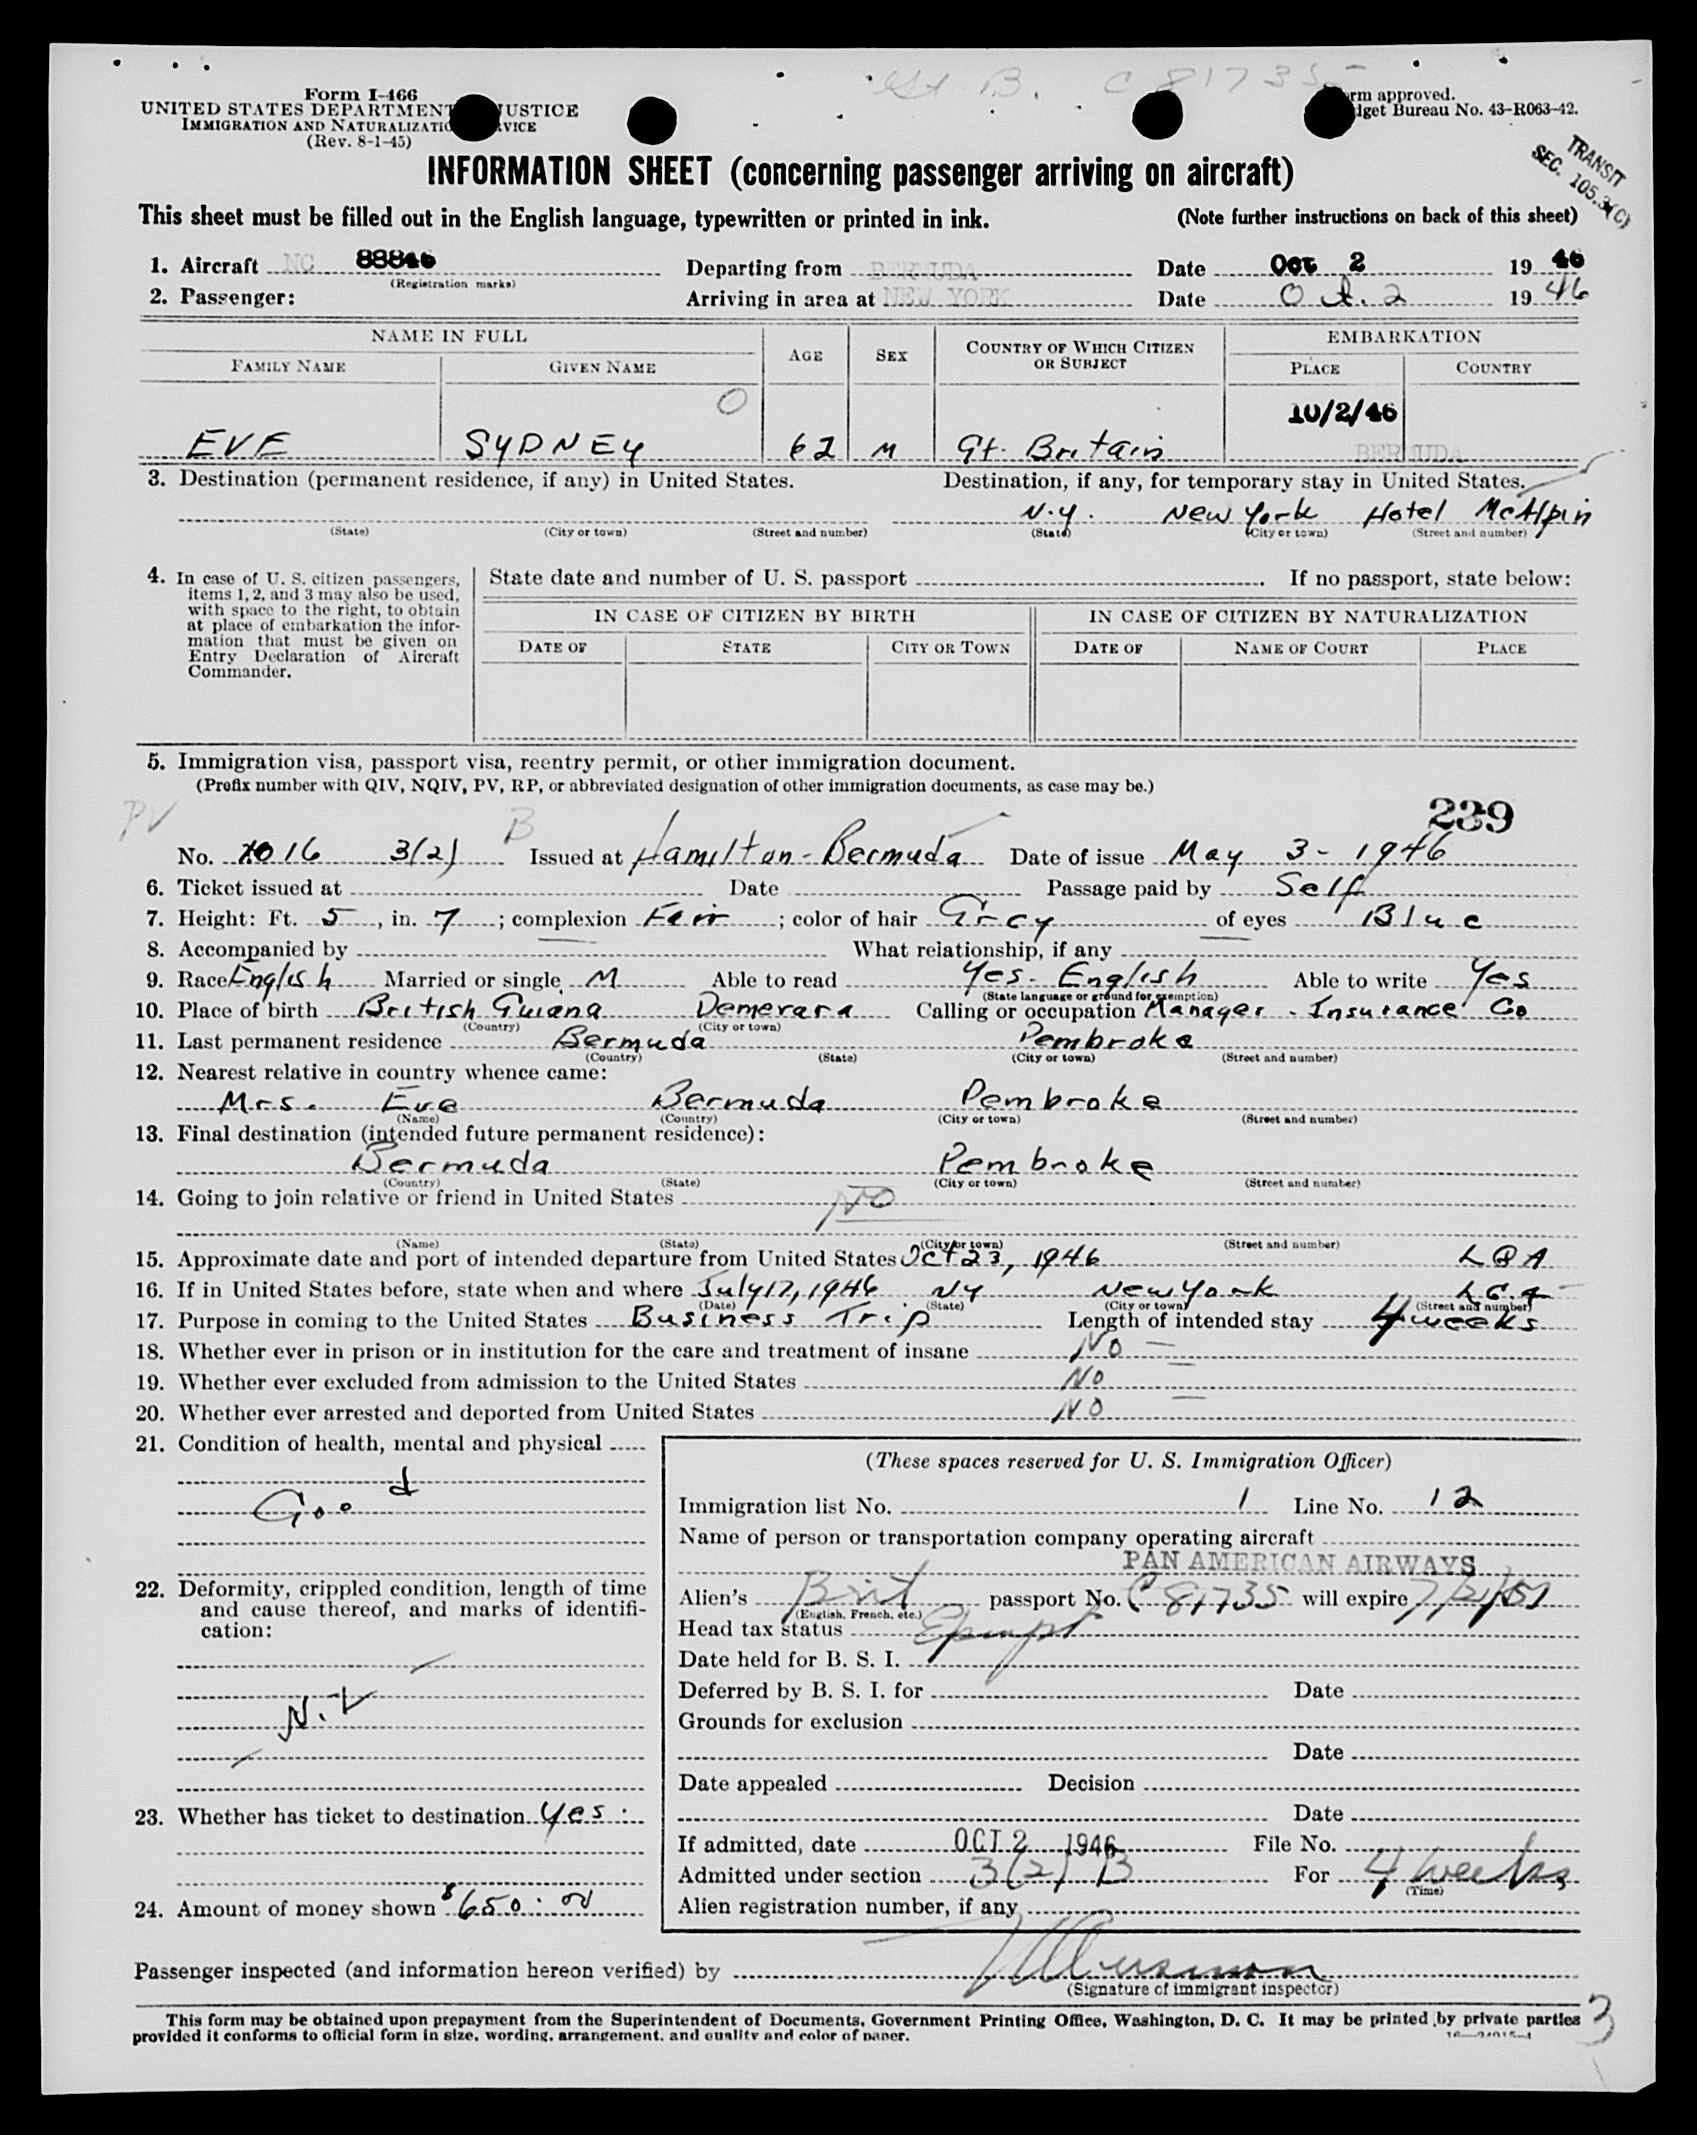 Gt B. C 81735
Form I-466
UNITED STATES DEPARTMENT JUSTICE
IMMIGRATION AND NATURALIZATION SERVICE
(Rev. 8-1-45)
Form approved.
Budget Bureau No. 43-R063-42.
TRANSIT
SEC. 105.3(C)
INFORMATION SHEET (concerning passenger arriving on aircraft)
This sheet must be filled out in the English language, typewritten or printed in ink. (Note further instructions on back of this sheet)
1. Aircraft NC 88846 Departing from BERMUDA Date Oct 2 1946
(Registration marks)
2. Passenger: Arriving in area at NEW YORK Date Oct. 2 1946
NAME IN FULL AGE SEX COUNTRY OF WHICH CITIZEN OR SUBJECT EMBARKATION
FAMILY NAME GIVEN NAME PLACE COUNTRY
0 10/2/46
EVE SYDNEY 62 M Gt. Britain BERMUDA
3. Destination (permanent residence, if any) in United States. Destination, if any, for temporary stay in United States.
N.Y. New York Hotel McAlpin
(State) (City or town) (Street and number) (State) (City or town) (Street and number)
4. In case of U. S. citizen passengers, items 1, 2, and 3 may also be used, with space to the right, to obtain at place of embarkation the information that must be given on Entry Declaration of Aircraft Commander.
State date and number of U. S. passport . If no passport, state below:
IN CASE OF CITIZEN BY BIRTH IN CASE OF CITIZEN BY NATURALIZATION
DATE OF STATE CITY OR TOWN DATE OF NAME OF COURT PLACE
5. Immigration visa, passport visa, reentry permit, or other immigration document.
(Prefix number with QIV, NQIV, PV, RP, or abbreviated designation of other immigration documents, as case may be.)
PV B 239
No. 1016 3(2) Issued at Hamilton - Bermuda Date of issue May 3 - 1946
6. Ticket issued at Date Passage paid by Self
7. Height: Ft. 5, in. 7; complexion Fair; color of hair Grey of eyes Blue
8. Accompanied by What relationship, if any
9. Race English Married or single M Able to read Yes - English Able to write Yes
(State language or ground for exemption)
10. Place of birth British Guiana Demerara Calling or occupation Manager - Insurance Co
(Country) (City or town)
11. Last permanent residence Bermuda Pembroke
(Country) (State) (City or town) (Street and number)
12. Nearest relative in country whence came:
Mrs. Eve Bermuda Pembroke
(Name) (Country) (City or town) (Street and number)
13. Final destination (intended future permanent residence):
Bermuda Pembroke
(Country) (State) (City or town) (Street and number)
14. Going to join relative or friend in United States NO
(Name) (State) (City or town) (Street and number)
15. Approximate date and port of intended departure from United States Oct 23, 1946 LGA
16. If in United States before, state when and where July 17, 1946 NY New York LGA
(Date) (State) (City or town) (Street and number)
17. Purpose in coming to the United States Business Trip Length of intended stay 4 weeks
18. Whether ever in prison or in institution for the care and treatment of insane No
19. Whether ever excluded from admission to the United States No
20. Whether ever arrested and deported from United States NO
21. Condition of health, mental and physical
Good
22. Deformity, crippled condition, length of time and cause thereof, and marks of identification:
N.L
23. Whether has ticket to destination Yes.
24. Amount of money shown $650.00
(These spaces reserved for U. S. Immigration Officer)
Immigration list No. 1 Line No. 12
Name of person or transportation company operating aircraft
PAN AMERICAN AIRWAYS
Alien's Brit passport No. C 81735 will expire 7/2/51
(English, French, etc.)
Head tax status Exempt
Date held for B. S. I.
Deferred by B. S. I. for Date
Grounds for exclusion
Date
Date appealed Decision
Date
If admitted, date OCT 2 1946 File No.
Admitted under section 3(2) B For 4 weeks
(Time)
Alien registration number, if any
Passenger inspected (and information hereon verified) by
(Signature of immigrant inspector)
This form may be obtained upon prepayment from the Superintendent of Documents, Government Printing Office, Washington, D. C. It may be printed by private parties
provided it conforms to official form in size, wording, arrangement, and quality and color of paper.
3